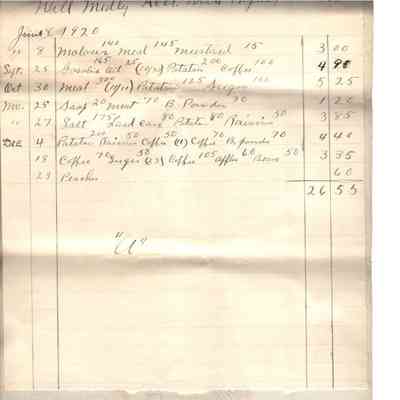 Will Medly Acct
June 8 1920
" 8 Molasses 140 meal 145 Mustard 15 3 00
Sept. 25 oil 25 Potatoes 200 Coffee 100 4 90
Oct 30 meal Potatoes 125 Sugar 100 5 25
Nov. 25 Soap 20 meat 70 B. Powder 70 1 20
" 27 Salt 175 Lard can 80 Potatoes 80 Raisins 50 3 85
Dec 4 Potatoes 200 Raisins 50 Coffee 50 (11) Coffee 70 B. powder 70 4 40
18 Coffee 70 Sugar 50 Coffee 105 apples 60 50 3 35
23 Peaches 60
26 55
"U"